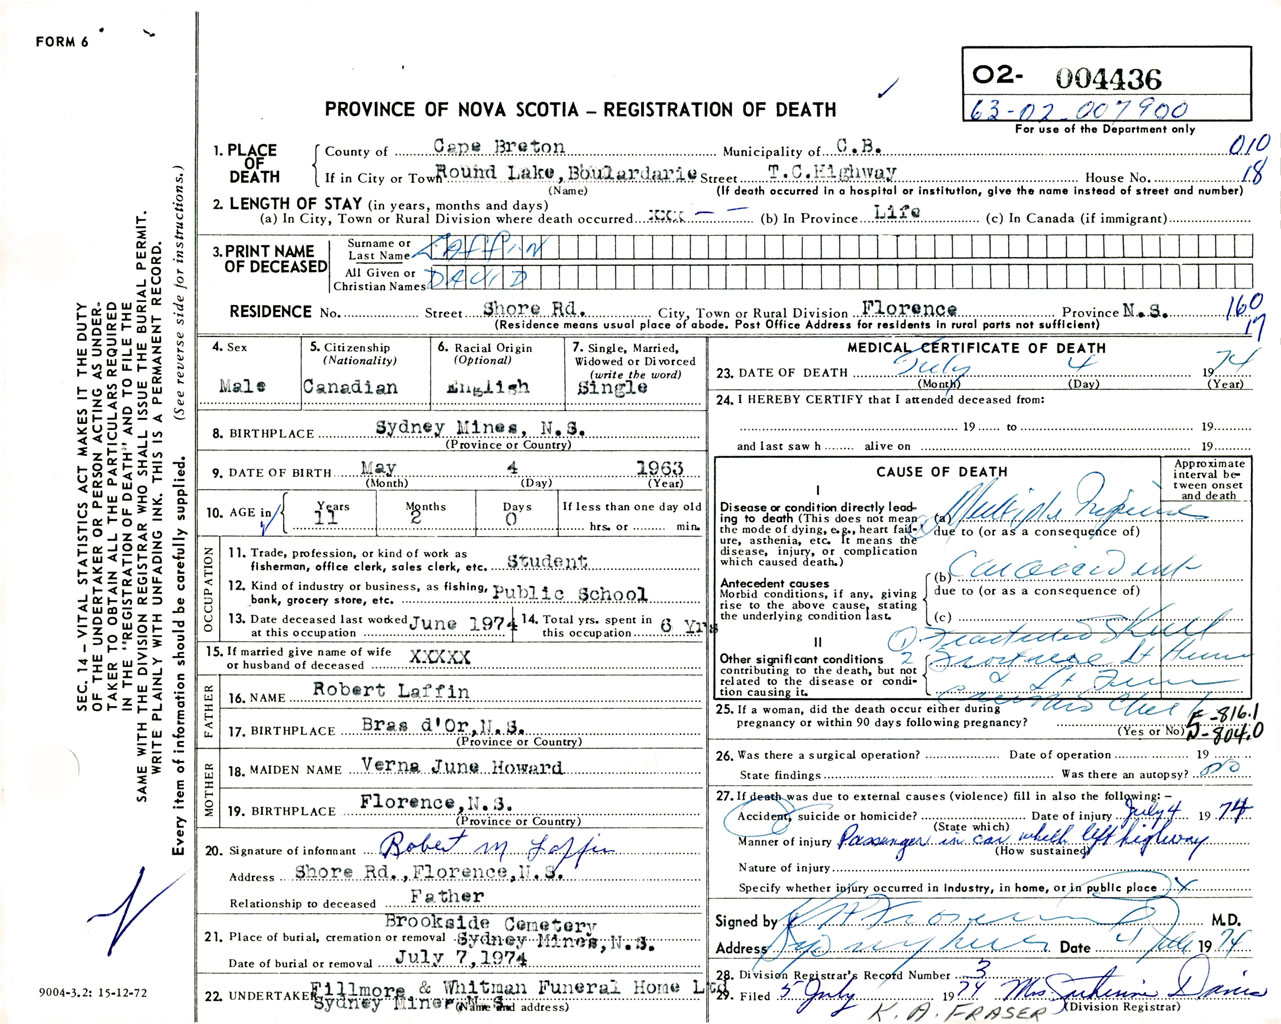 FORM 6
O2- 004436
63-02-007900
For use of the Department only
PROVINCE OF NOVA SCOTIA – REGISTRATION OF DEATH
1. PLACE OF DEATH
County of Cape Breton Municipality of C.B. 010
If in City or Town Round Lake, Boulardarie Street T.C.Highway House No. 18
(Name) (If death occurred in a hospital or institution, give the name instead of street and number)
2. LENGTH OF STAY (in years, months and days)
(a) In City, Town or Rural Division where death occurred XXX – – (b) In Province Life (c) In Canada (if immigrant)
3. PRINT NAME OF DECEASED
Surname or Last Name LAFFIN
All Given or Christian Names DAVID
RESIDENCE No. Street Shore Rd. City, Town or Rural Division Florence Province N.S. 160
(Residence means usual place of abode. Post Office Address for residents in rural parts not sufficient) 17
4. Sex
Male
5. Citizenship
(Nationality)
Canadian
6. Racial Origin
(Optional)
English
7. Single, Married, Widowed or Divorced
(write the word)
Single
8. BIRTHPLACE Sydney Mines, N.S.
(Province or Country)
9. DATE OF BIRTH May 4 1963
(Month) (Day) (Year)
10. AGE in Years Months Days If less than one day old
11 2 0 hrs. or min.
OCCUPATION
11. Trade, profession, or kind of work as fisherman, office clerk, sales clerk, etc. Student
12. Kind of industry or business, as fishing, bank, grocery store, etc. Public School
13. Date deceased last worked at this occupation June 1974
14. Total yrs. spent in this occupation 6 Yrs
15. If married give name of wife or husband of deceased XXXXX
FATHER
16. NAME Robert Laffin
17. BIRTHPLACE Bras d'Or,N.S.
(Province or Country)
MOTHER
18. MAIDEN NAME Verna June Howard
19. BIRTHPLACE Florence,N.S.
(Province or Country)
20. Signature of informant Robert M Laffin
Address Shore Rd.,Florence,N.S.
Relationship to deceased Father
21. Place of burial, cremation or removal Brookside Cemetery Sydney Mines,N.S.
Date of burial or removal July 7,1974
22. UNDERTAKER Fillmore & Whitman Funeral Home Ltd
Sydney Mines N.S.
(Name and address)
MEDICAL CERTIFICATE OF DEATH
23. DATE OF DEATH July 4 1974
(Month) (Day) (Year)
24. I HEREBY CERTIFY that I attended deceased from:
19 to 19
and last saw h alive on 19
CAUSE OF DEATH
Approximate interval between onset and death
I
Disease or condition directly leading to death (This does not mean the mode of dying, e.g., heart failure, asthenia, etc. It means the disease, injury, or complication which caused death.)
(a) Multiple Injuries
due to (or as a consequence of)
Antecedent causes
Morbid conditions, if any, giving rise to the above cause, stating the underlying condition last.
(b) Car accident
due to (or as a consequence of)
(c)
II
Other significant conditions contributing to the death, but not related to the disease or condition causing it.
1 Fractured Skull
2
Chest
25. If a woman, did the death occur either during pregnancy or within 90 days following pregnancy?
(Yes or No)
E-816.1
N-804.0
26. Was there a surgical operation? Date of operation 19
State findings Was there an autopsy? no
27. If death was due to external causes (violence) fill in also the following: –
Accident, suicide or homicide? Date of injury July 4 1974
(State which)
Manner of injury Passenger in car which left highway
(How sustained)
Nature of injury
Specify whether injury occurred in Industry, in home, or in public place X
Signed by M.D.
Address Date 4 July 1974
28. Division Registrar's Record Number 3
29. Filed 5 July 1974 Mrs Davis
(Division Registrar)
K. A. FRASER
SEC. 14 – VITAL STATISTICS ACT MAKES IT THE DUTY
OF THE UNDERTAKER OR PERSON ACTING AS UNDER-
TAKER TO OBTAIN ALL THE PARTICULARS REQUIRED
IN THE "REGISTRATION OF DEATH" AND TO FILE THE
SAME WITH THE DIVISION REGISTRAR WHO SHALL ISSUE THE BURIAL PERMIT.
WRITE PLAINLY WITH UNFADING INK. THIS IS A PERMANENT RECORD.
Every item of information should be carefully supplied. (See reverse side for instructions.)
9004-3.2: 15-12-72